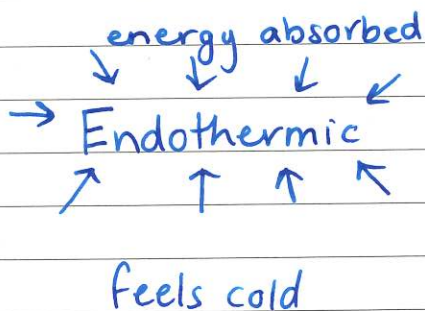 energy absorbed
Endothermic
feels cold